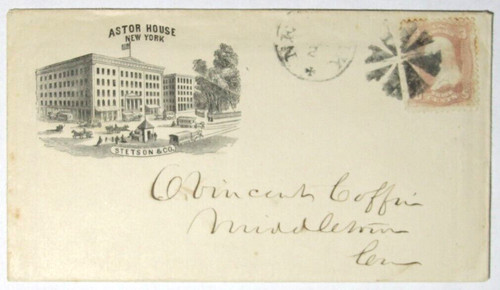 ASTOR HOUSE
NEW YORK
STETSON & CO.
O. Vincent Coffin
Middletown
Con